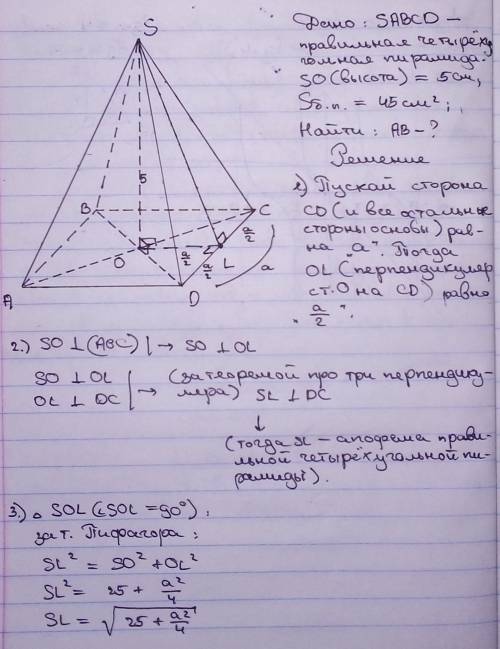 S
B
C
5
a/2
O
a/2
a/2
L
a
A
D
Дано: SABCD –
правильная четырёху
гольная пирамида.
SO (высота) = 5 см,
Sб.п. = 45 см²;
Найти: AB - ?
Решение
1) Пускай сторона
CD (и все остальные
стороны основы) рав-
на "a". Тогда
OL (перпендикуляр
с т.O на CD) равно
"a/2".
2.) SO ⊥ (ABC) | → SO ⊥ OL
SO ⊥ OL
OL ⊥ DC
→ (за теоремой про три перпендику-
ляра) SL ⊥ DC
↓
(тогда SL – апофема прави-
льной четырёхугольной пи-
рамиды).
3.) △ SOL (∠SOL = 90°),
за т. Пифагора:
SL² = SO² + OL²
SL² = 25 + a²/4
SL = √(25 + a²/4)